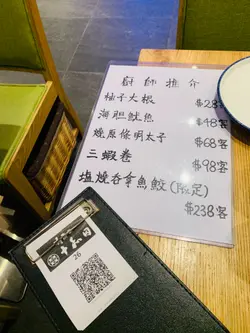 廚師推介
柚子大根 $28客
海胆魷魚 $48客
燒原條明太子 $68客
三蝦卷 $98客
塩燒吞拿魚鮫(限定) $238客
26